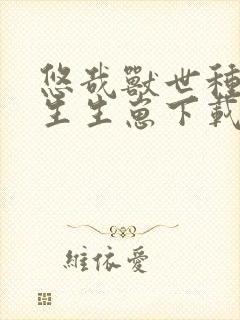 悠哉獸世種
生生崽下載
維依愛